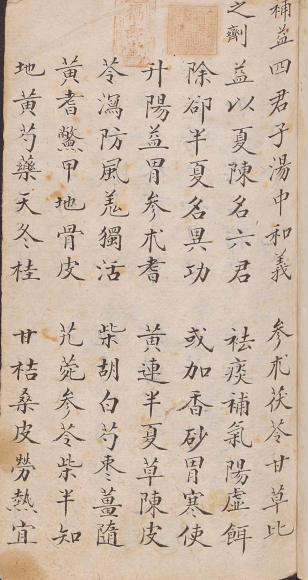 補益四君子湯中和義 參朮茯苓甘草比
之劑 益以夏陳名六君 祛痰補氣陽虛餌
除卻半夏名異功 或加香砂胃寒使
升陽益胃參朮耆 黃連半夏草陳皮
苓瀉防風羌獨活 柴胡白芍棗薑隨
黃耆鱉甲地骨皮 艽菀參苓柴半知
地黃芍藥天冬桂 甘桔桑皮勞熱宜